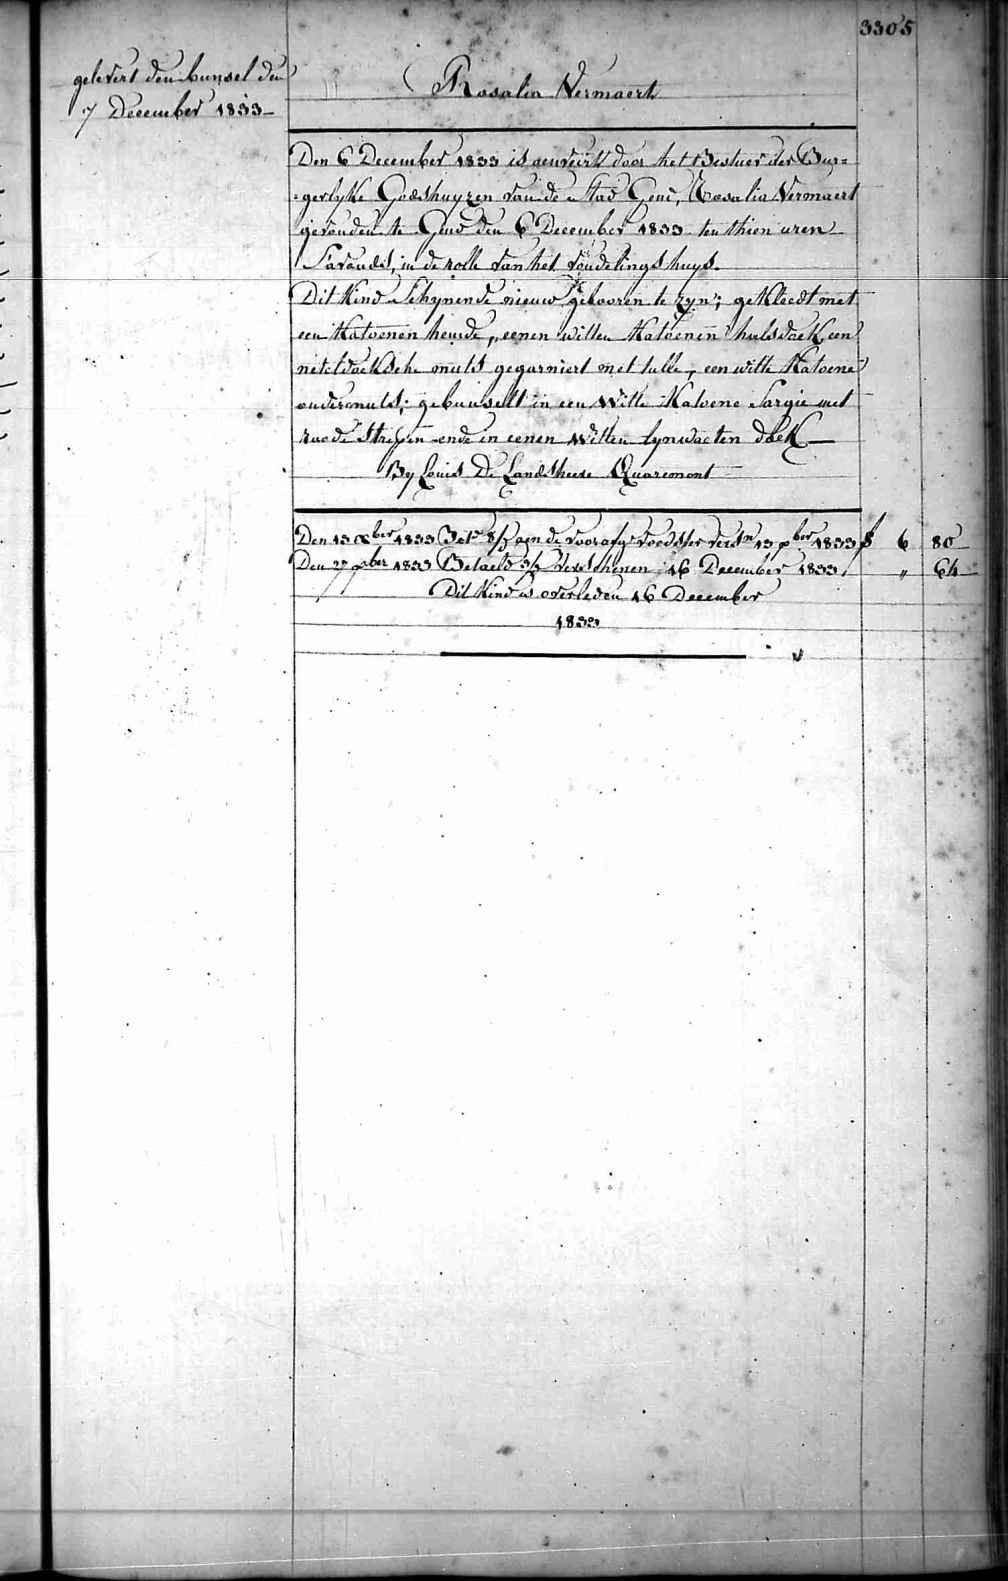 3305
gelevert den bunsel den
7 December 1833
Rosalia Vermaert
Den 6 December 1833 is aenveirt door het Bestuer der Bur=
=gerlyke Godshuyzen van de Stad Gend, Rosalia Vermaert
gevonden te Gend den 6 December 1833 ten thien uren
S'avonds, in de rolle van het vondelings huys.
Dit Kind Schynende nieuw gebooren te zyn; gekleedt met
een Katoenen hemde, eenen witten Katoenen halsdoek, een
neteldoeksche muts gegarniert met tulle, een witte Katoene
ondermuts; gebunselt in een Witte Katoene Sargie met
roode Strepen ende in eenen Witten lynwaeten doek
By Louis De Landsheere Quaremont
Den 13 Xber 1833 8/3 aen de voorafge voedster 13 Xber 1833 f 6 80
Den 27 Xber 1833 Betaeld 3/3 Verschenen 16 December 1833. " 64
Dit Kind is overleden 16 December
1833